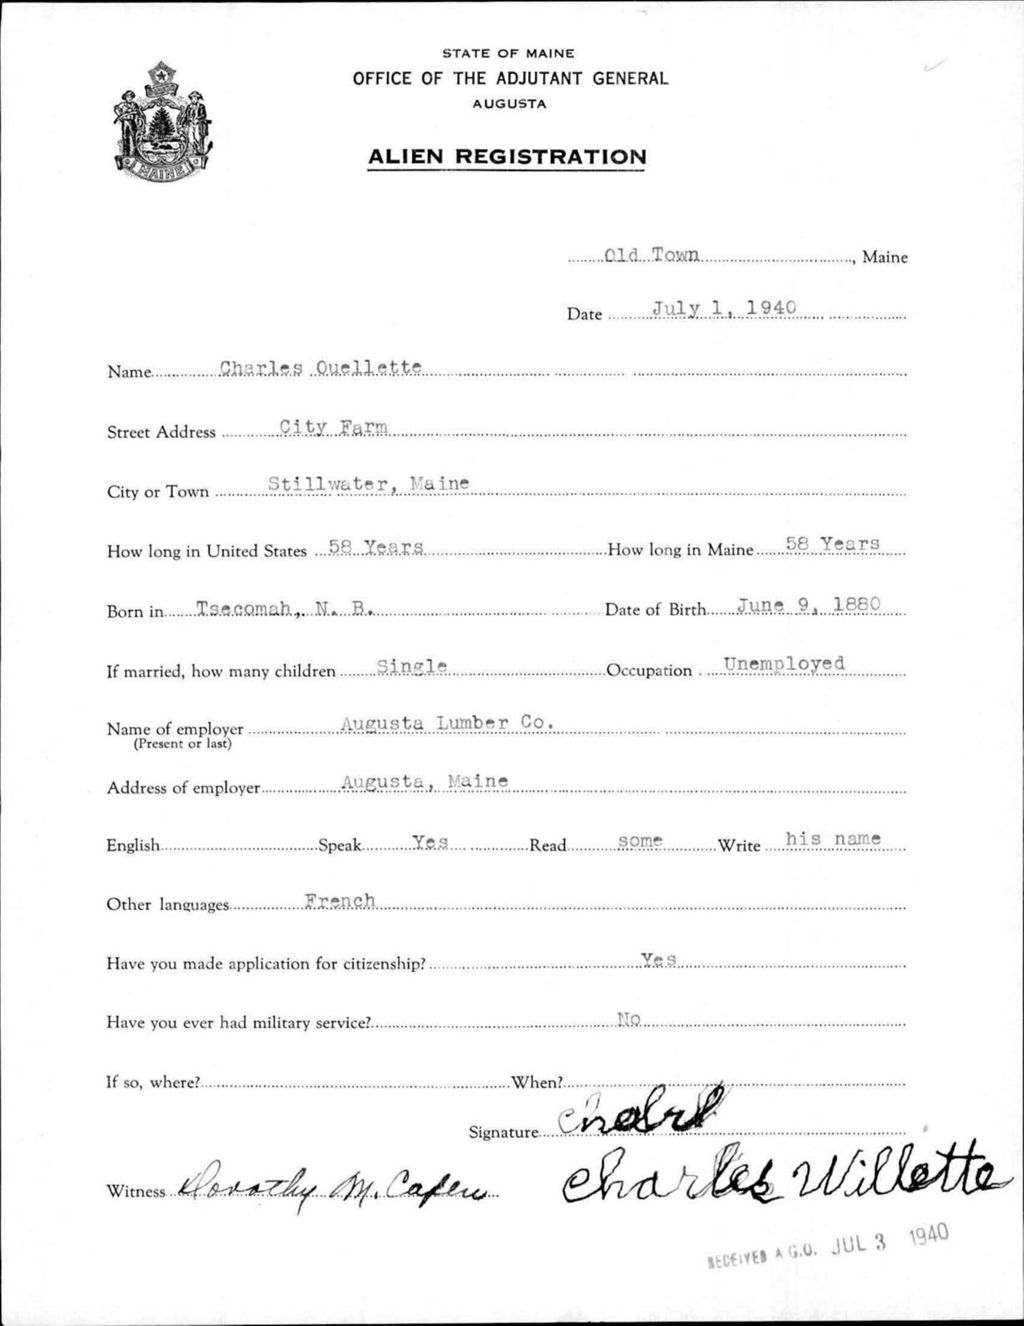 STATE OF MAINE
OFFICE OF THE ADJUTANT GENERAL
AUGUSTA
ALIEN REGISTRATION
MAINE
Old Town, Maine
Date July 1, 1940
Name Charles Ouellette
Street Address City Farm
City or Town Stillwater, Maine
How long in United States 58 Years How long in Maine 58 Years
Born in Tsecomah, N. B. Date of Birth June 9, 1880
If married, how many children Single Occupation Unemployed
Name of employer Augusta Lumber Co.
(Present or last)
Address of employer Augusta, Maine
English Speak Yes Read some Write his name
Other languages French
Have you made application for citizenship? Yes
Have you ever had military service? No
If so, where? When?
Signature
Witness Dorothy M. Capen Charles Willette
RECEIVED A.G.O. JUL 3 1940